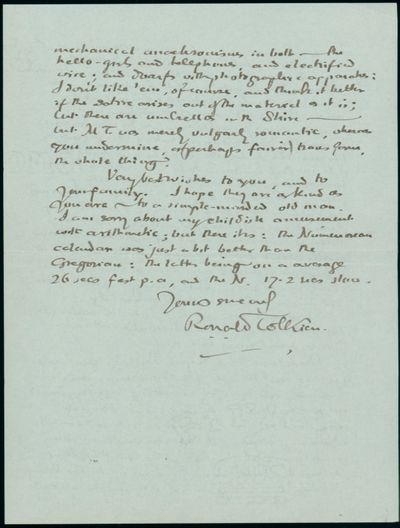 mechanical anachronisms in both — the
hello-girls and telephone, and electrified
wire; and dwarfs with photographic apparatus:
I don't like 'em, of course, and think it better
if the satire arises out of the material as it is;
but there are umbrellas in the Shire —
but M T was merely vulgarly romantic, whereas
you undermine, & perhaps transform,
the whole thing.
Very best wishes to you, and to
your family. I hope they are as kind as
you are — to a simple-minded old man.
I am sorry about my childish amusement
with arithmetic; but there it is: the Númenórean
calendar was just a bit better than the
Gregorian: the latter being on average
26 secs fast p.a., and the N. 17.2 secs slow.
Yours sincerely
Ronald Tolkien.